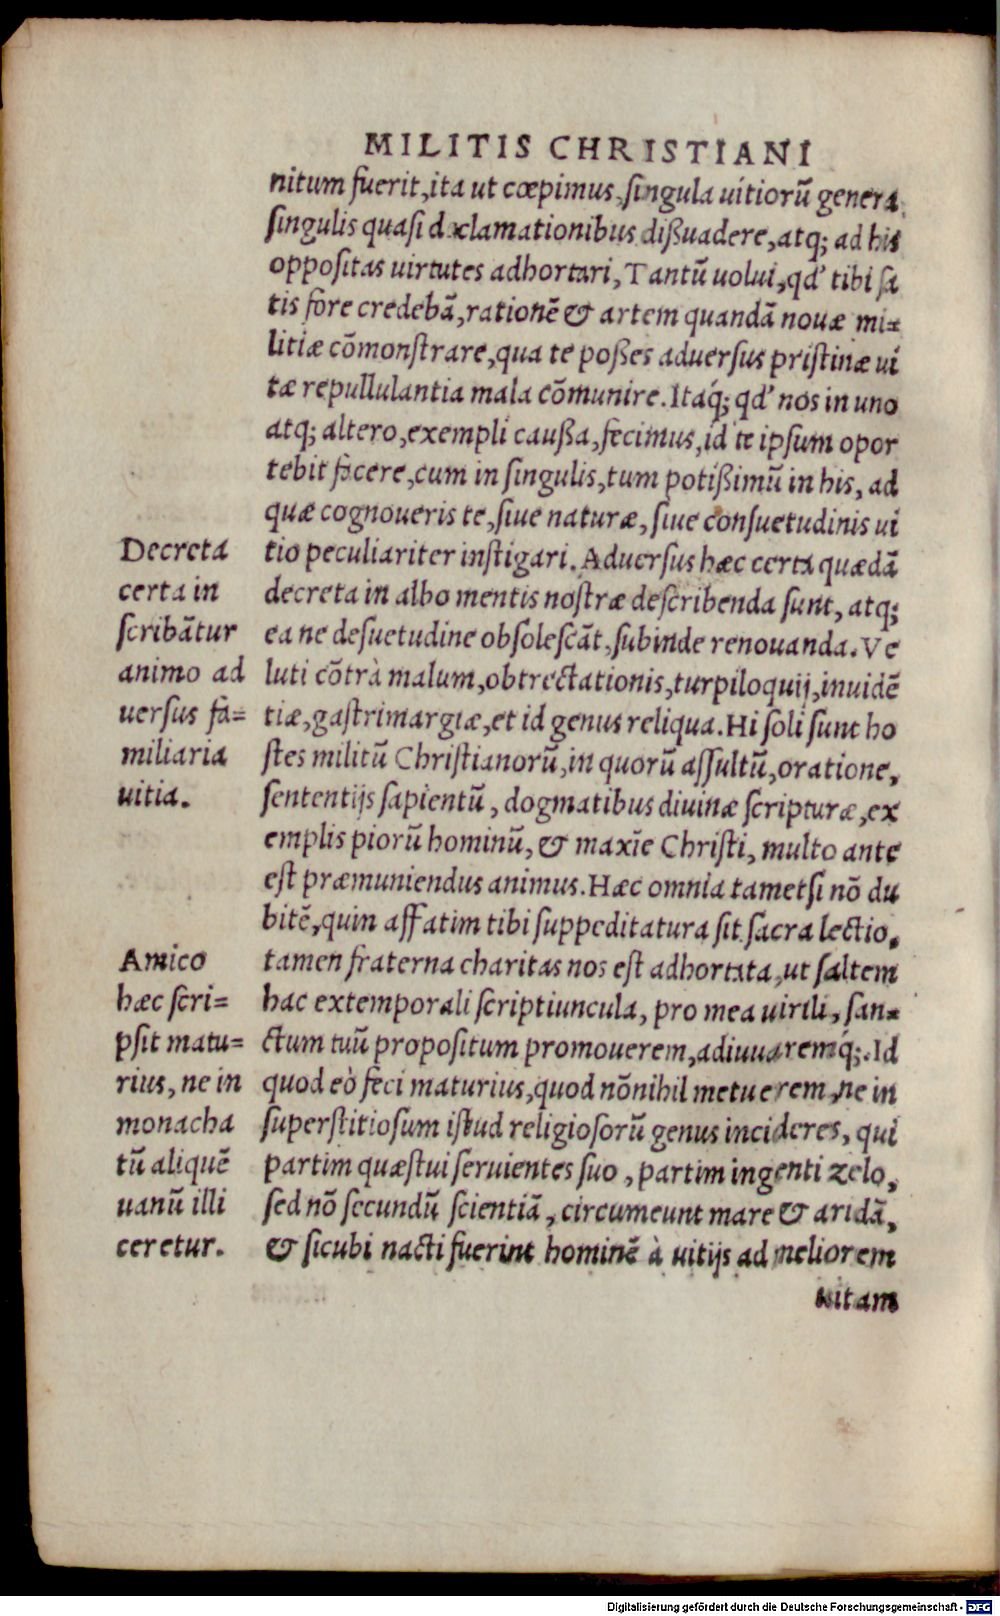 MILITIS CHRISTIANI
nitum fuerit, ita ut cœpimus, singula uitiorũ genera
singulis quasi declamationibus dißuadere, atq; ad his
oppositas uirtutes adhortari, Tantũ uolui, qd' tibi sa
tis fore credebã, rationẽ & artem quandã nouæ mi=
litiæ cõmonstrare, qua te poßes aduersus pristinæ ui
tæ repullulantia mala cõmunire. Itaq́; qd' nos in uno
atq; altero, exempli caußa, fecimus, id te ipsum opor
tebit facere, cum in singulis, tum potißimũ in his, ad
quæ cognoueris te, siue naturæ, siue consuetudinis ui
tio peculiariter instigari. Aduersus hæc certa quædã
decreta in albo mentis nostræ describenda sunt, atq;
ea ne desuetudine obsolescãt, subinde renouanda. Ve
luti cõtrà malum, obtrectationis, turpiloquij, inuidẽ
tiæ, gastrimargiæ, et id genus reliqua. Hi soli sunt ho
stes militũ Christianorũ, in quorũ assultũ, oratione,
sententijs sapientũ, dogmatibus diuinæ scripturæ, ex
emplis piorũ hominũ, & maxĩe Christi, multo ante
est præmuniendus animus. Hæc omnia tametsi nõ du
bitẽ, quin affatim tibi suppeditatura sit sacra lectio,
tamen fraterna charitas nos est adhortata, ut saltem
hac extemporali scriptiuncula, pro mea uirili, san=
ctum tuũ propositum promouerem, adiuuaremq́;. Id
quod eò feci maturius, quod nõnihil metuerem, ne in
superstitiosum istud religiosorũ genus incideres, qui
partim quæstui seruientes suo, partim ingenti zelo,
sed nõ secundũ scientiã, circumeunt mare & aridã,
& sicubi nacti fuerint hominẽ à uitijs ad meliorem
uitam
Decreta
certa in
scribãtur
animo ad
uersus fa=
miliaria
uitia.
Amico
hæc scri=
psit matu=
rius, ne in
monacha
tũ aliquẽ
uanũ illi
ceretur.
Digitalisierung gefördert durch die Deutsche Forschungsgemeinschaft - DFG